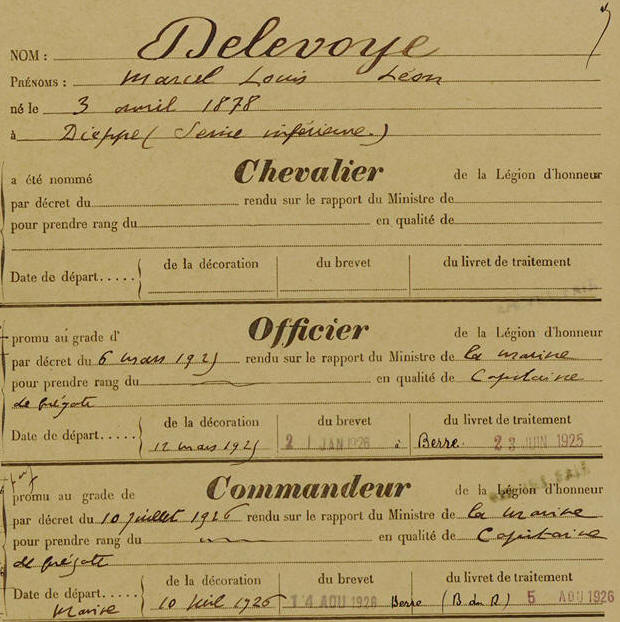 NOM : Delevoye
PRÉNOMS : Marcel Louis Léon
né le 3 avril 1878
à Dieppe (Seine inférieure.)
a été nommé Chevalier de la Légion d'honneur
par décret du rendu sur le rapport du Ministre de
pour prendre rang du en qualité de
Date de départ..... de la décoration du brevet du livret de traitement
promu au grade d' Officier de la Légion d'honneur
par décret du 6 mars 1925 rendu sur le rapport du Ministre de la marine
pour prendre rang du en qualité de Capitaine
de frégate
Date de départ..... de la décoration du brevet du livret de traitement
12 mars 1925 2 JAN 1926 à Berre. 23 JUIN 1925
promu au grade de Commandeur de la Légion d'honneur
par décret du 10 juillet 1926 rendu sur le rapport du Ministre de la marine
pour prendre rang du en qualité de Capitaine
de frégate
Date de départ..... de la décoration du brevet du livret de traitement
Marine 10 Juil 1926 14 AOU 1926 Berre (B du R) 5 AOU 1926